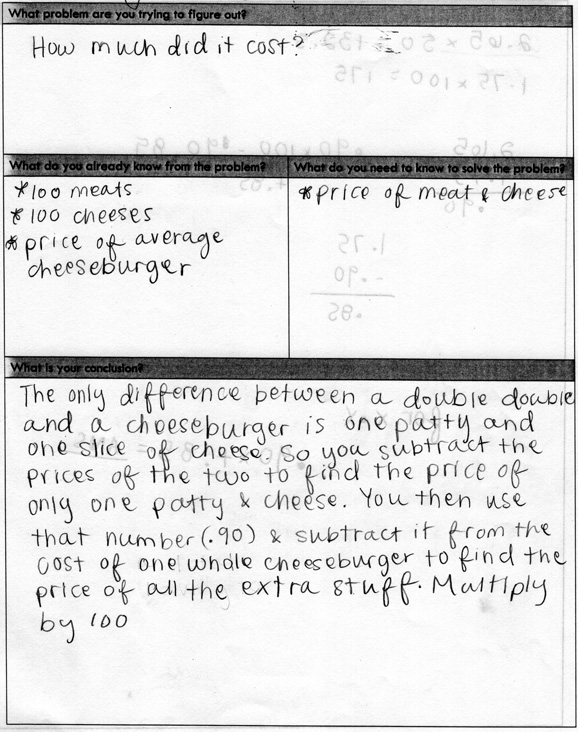 What problem are you trying to figure out?
How much did it cost?
What do you already know from the problem?
*100 meats
*100 cheeses
*price of average
cheeseburger
What do you need to know to solve the problem?
*price of meat & cheese
1.75
-.90
.85
What is your conclusion?
The only difference between a double double
and a cheeseburger is one patty and
one slice of cheese. So you subtract the
prices of the two to find the price of
only one patty & cheese. You then use
that number (.90) & subtract it from the
cost of one whole cheeseburger to find the
price of all the extra stuff. Multiply
by 100